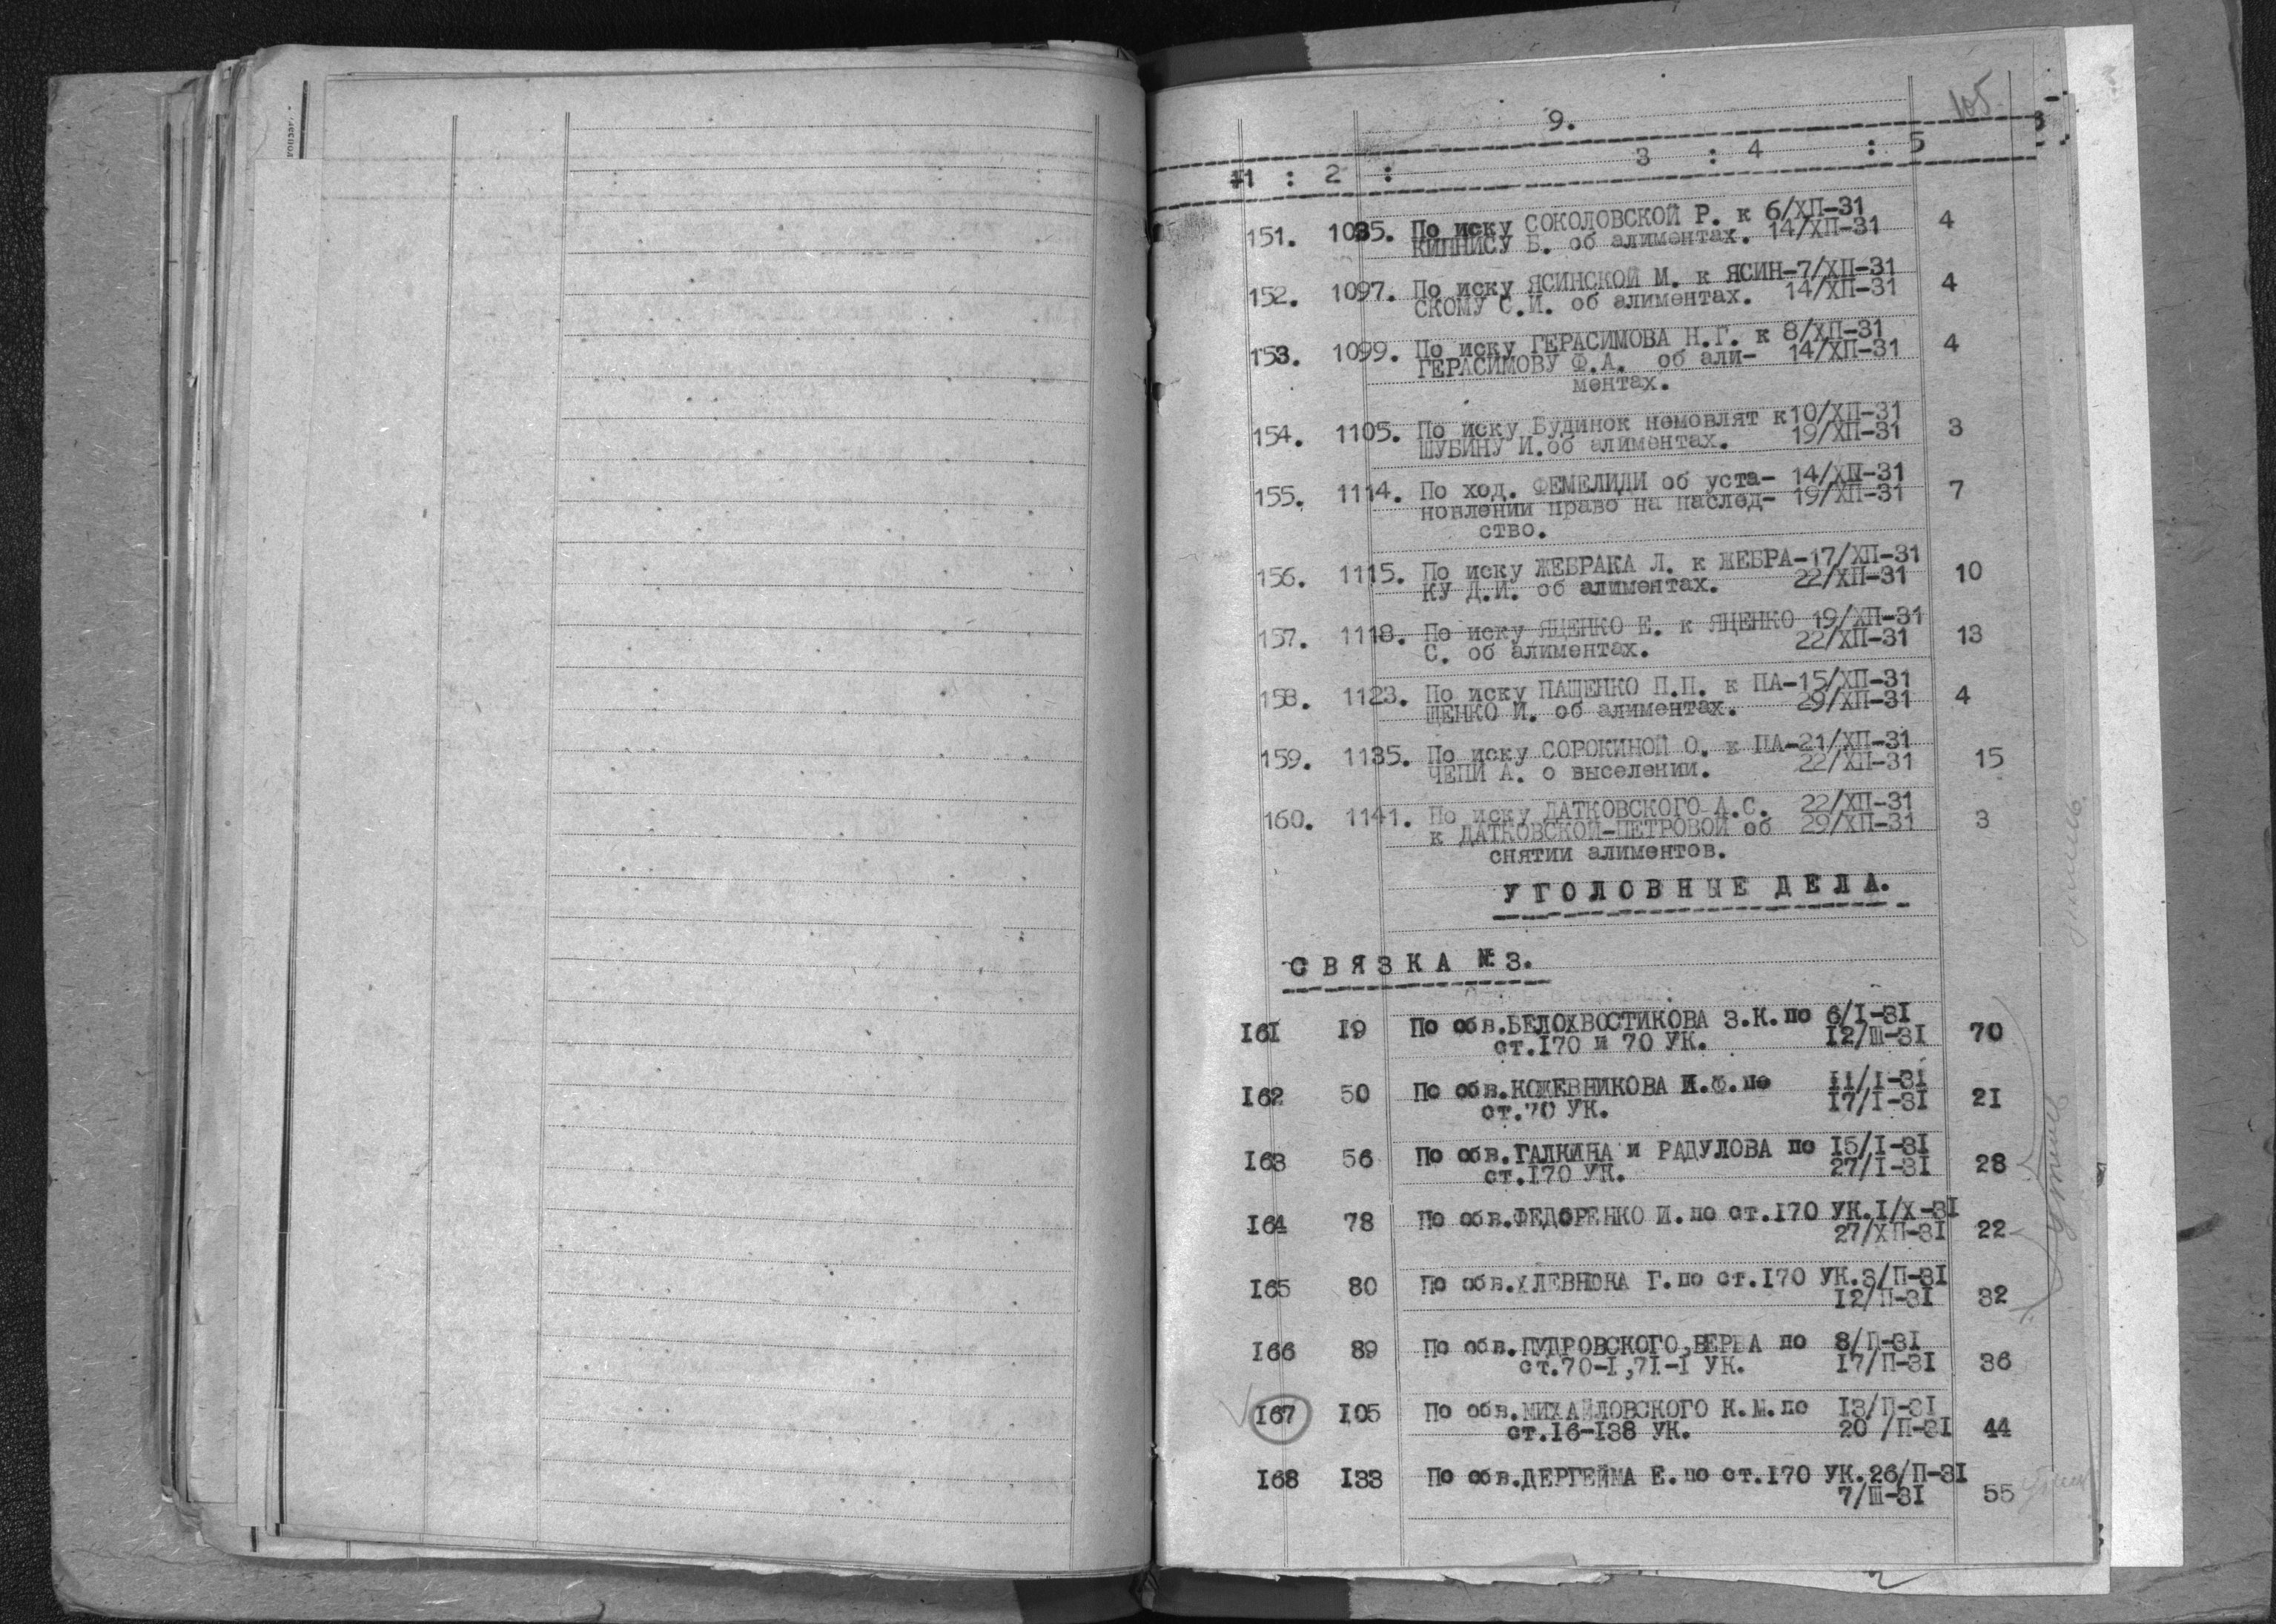 105
9.
1 : 2 : 3 : 4 : 5
151. 1035. По иску СОКОЛОВСКОЙ Р. к 6/ХП-31 4
КИПНИСУ Б. об алиментах. 14/ХП-31
152. 1097. По иску ЯСИНСКОЙ М. к ЯСИН-7/ХП-31 4
СКОМУ С.И. об алиментах. 14/ХП-31
153. 1099. По иску ГЕРАСИМОВА Н.Г. к 8/ХП-31 4
ГЕРАСИМОВУ Ф.А. об али- 14/ХП-31
ментах.
154. 1105. По иску Будинок немовлят к10/ХП-31 3
ШУБИНУ И.об алиментах. 19/ХП-31
155. 1114. По ход. ФЕМЕЛИДИ об уста- 14/ХП-31 7
новлении право на наслед- 19/ХП-31
ство.
156. 1115. По иску ЖЕБРАКА Л. к ЖЕБРА-17/ХП-31 10
КУ Д.И. об алиментах. 22/ХП-31
157. 1118. По иску ЯЦЕНКО Е. к ЯЦЕНКО 19/ХП-31 13
С. об алиментах. 22/ХП-31
158. 1123. По иску ПАЩЕНКО П.П. к ПА-15/ХП-31 4
ЩЕНКО И. об алиментах. 29/ХП-31
159. 1135. По иску СОРОКИНОЙ О. к ПА-21/ХП-31 15
ЧЕПИ А. о выселении. 22/ХП-31
160. 1141. По иску ДАТКОВСКОГО А.С. 22/ХП-31 3
к ДАТКОВСКОЙ-ПЕТРОВОЙ об 29/ХП-31
снятии алиментов.
УГОЛОВНЫЕ ДЕЛА.
СВЯЗКА № 3.
I6I I9 По обв.БЕЛОХВОСТИКОВА З.К.по 6/I-3I 70
ст.I70 и 70 УК. I2/Ш-3I
I62 50 По обв.КОЖЕВНИКОВА И.Ф.по II/I-3I 2I
ст.70 УК. I7/I-3I
I63 56 По обв.ГАЛКИНА и РАДУЛОВА по I5/I-3I 28
ст.I70 УК. 27/I-3I
I64 78 По обв.ФЕДОРЕНКО И.по ст.I70 УК.I/Х-3I 22
27/ХП-3I
I65 80 По обв.ХЛЕВНЮКА Г.по ст.I70 УК.3/П-3I 32
I2/П-3I
I66 89 По обв.ПУДРОВСКОГО,ВЕРБА по 8/П-3I 36
ст.70-I,7I-I УК. I7/П-3I
I67 I05 По обв.МИХАЙЛОВСКОГО К.М.по I3/П-3I 44
ст.I6-I38 УК. 20 /П-3I
I68 I33 По обв.ДЕРГЕЙМА Е.по ст.I70 УК.26/П-3I 55
7/Ш-3I